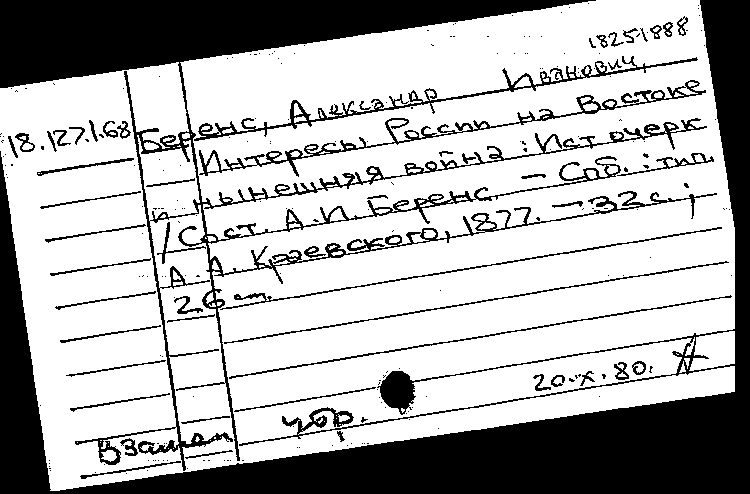 1825-1888
18.127.1.68 Беренс, Александр Иванович,
Интересы России на Востоке
и нынешняя война : Ист очерк
/ Сост. А.И. Беренс. — Спб. : тип.
А.А. Краевского, 1877. — 32 с. ;
26 cm.
20.X.80.
Взамен убр.